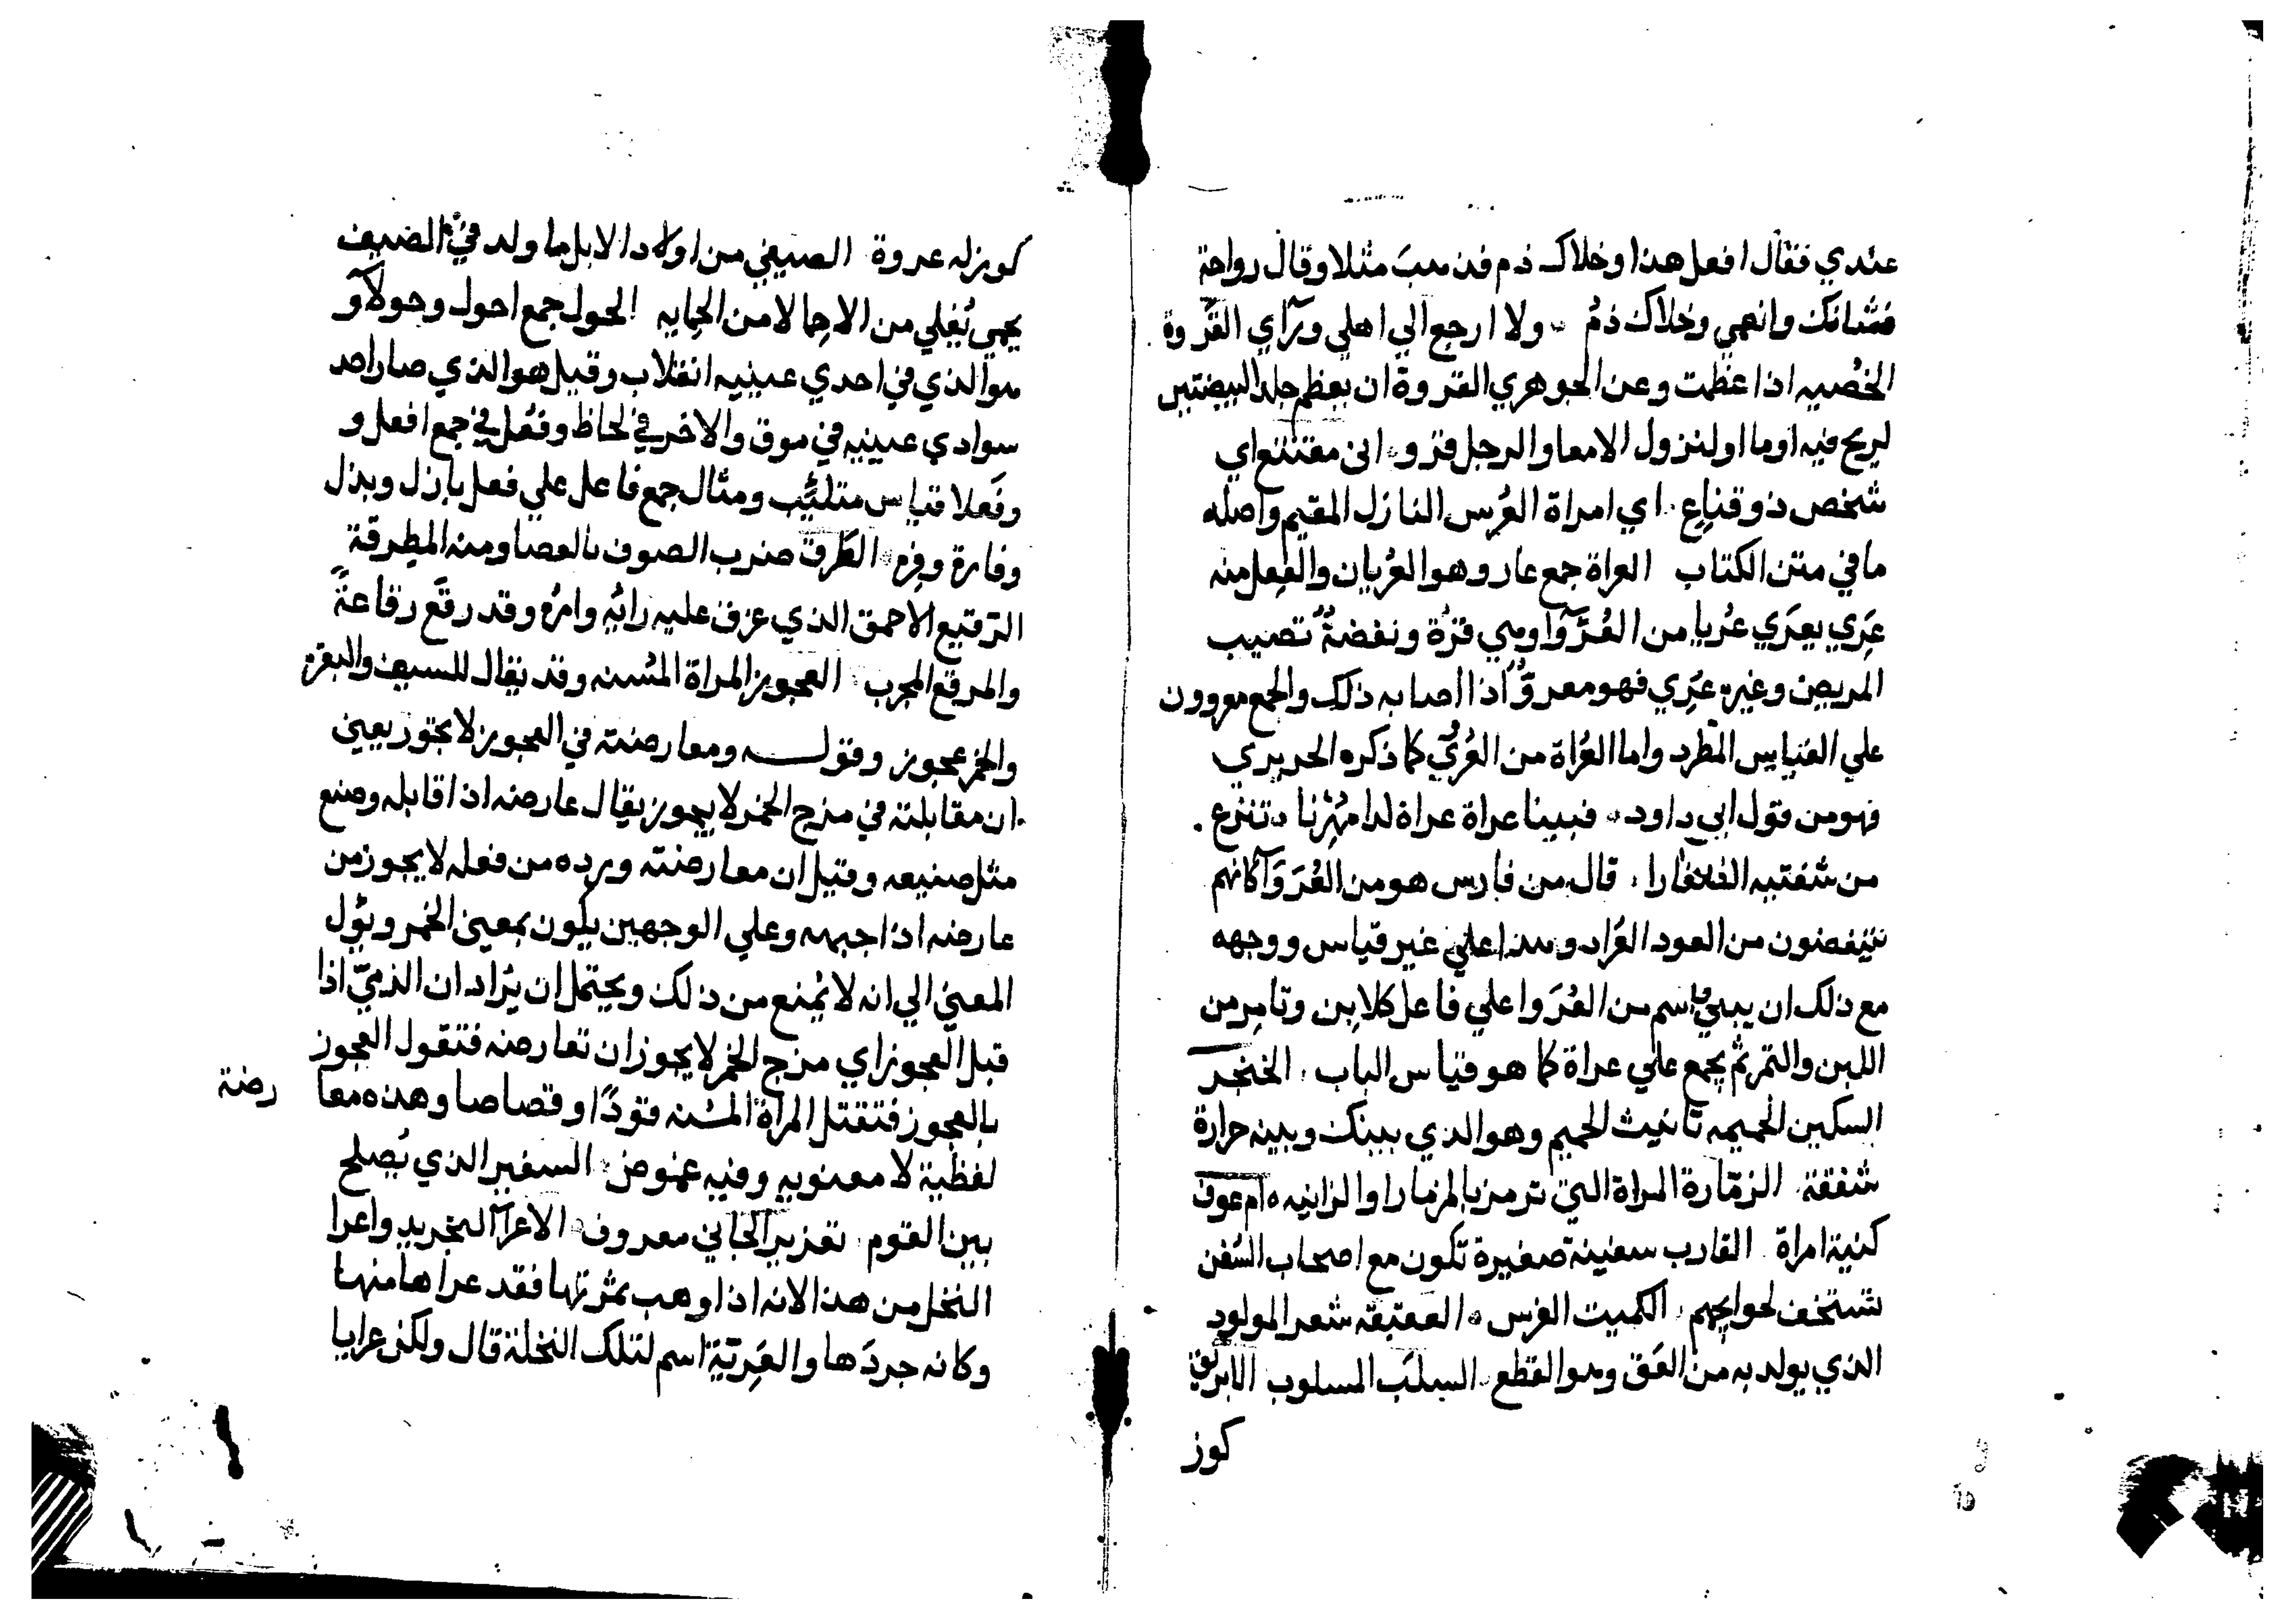 عندي فقال افعل هذا وخلاك ذم فذهبت مثلا وقال رواحة
فشانك وانعمي وخلاك ذم ولا ارجع الي اهلي ورآي القَروة
الخُصيه اذا عظمت وعن الجوهري القروة ان يعظم جلد البيضتين
لريح فيه اوما او لنزول الامعا والرجل قرو انى مقتنع اي
شخص ذو قناع اي امراة العُرس النازل المقيم واصله
ما في متن الكتاب العراة جمع عار وهو العُريان والفعل منه
عَرِي يعرَي عُريا من العُرَوَا وهي قرَّة ونفضةٌ تصيب
المريض وغيره عُرِي فهو معروٌّ اذا اصابه ذلك والجمع معروون
علي القياس المطرد واما العُراة من العُرْي كما ذكره الحريري
فهو من قول ابي داود فبينا عراة لدا مُهْرِنا تنزع
من شفتيه الصفارا قال من فارس هو من العُرَوَآ كانهم
ينتفضون من العود العُراد وهذا علي غير قياس ووجهه
مع ذلك ان يبني اسم من العُرَوا علي فاعل كلابن وتامر من
اللبن والتمر ثم يجمع علي عراة كما هو قياس الباب الخنجر
السكين الحميمه تانيث الحميم وهو الذي بينك وبينه حرارة
شفقة الزمّارة المراة التي ترمز بالمزمار او الزانيه ام عوف
كنية امراة القارب سفينة صغيرة تكون مع اصحاب السُفن
تستخف لحوايجهم الكميت الفرس العقيقه شعر المولود
الذي يولد به من العَق وهو القطع السلَب المسلوب الابريق
كوز
كوز له عروة الصيفي من اولاد الابل ما ولد في الصيف
يحمي تُغلي من الاحما لا من الحِمايه الحول جمع احول وحولآ و
هو الذي في احدي عينيه انقلاب وقيل هو الذي صار احد
سوادي عينيه في موق والاخر في لحاظ وفُعْل في جمع افعل و
وفَعلا قياس متلئب ومثال جمع فاعل علي فعل بازل وبزل
وفارة وفره الطَرق ضرب الصوف بالعصا ومنه المطرقة
الرَقيع الاحمق الذي عزف عليه رائه وامره وقد رقَع رقاعةً
والمرقع المجرب العجوز المراة المُسنه وقد يقال للسيف والبقره
والخمر عجوز وقوله ومعارضته في العجوز لا يجوز يعني
ان مقابلته في مزج الخمر لا يجوز يقال عارضه اذا قابله وصنع
مثل صنيعه وقيل ان معارضته ورده من فعله لا يجوز من
عارضه اذا جبهه وعلي الوجهين يكون بمعني الخمر ويؤل
المعني الي انه لا يُمنع من ذلك ويحتمل ان يُراد ان الذميّ اذا
قبل العجوز اي مزج الخمر لا يجوز ان تعارضه فتقول العجوز
بالعجوز فتقتل المراة المسُنه قودًا وقصاصا وهذه معا رضة
لفظية لا معنويه وفيه غموض السفير الذي يُصلح
بين القوم تعزير الجاني معروف الاعرآ التجريد واعرا
النخل من هذا لانه اذا وهب ثمرتها فقد عراها منها
وكانه جردَها والعَرِيّة اسم لتلك النخلة قال ولكن عرايا